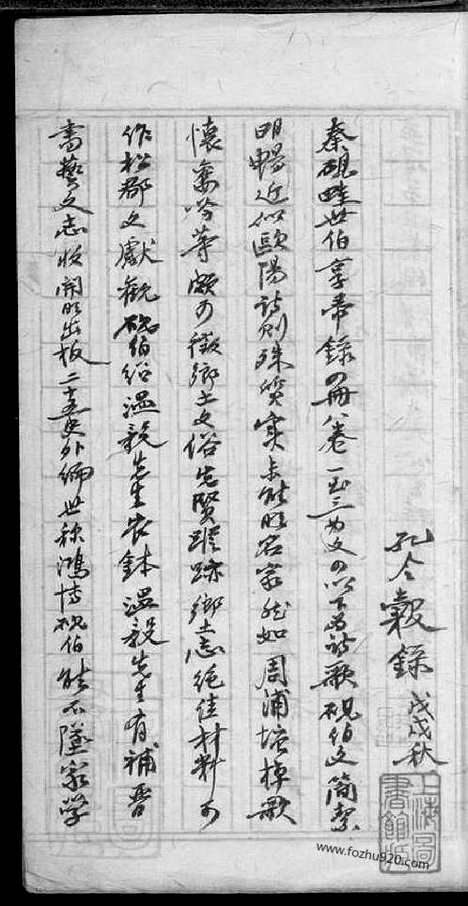 孔令穀錄 戊戌秋
秦硯畦世伯享帚錄四冊八卷一至三為文四以下為詩歌硯伯文簡潔
明暢近似歐陽詩則殊質實未能
名家然如周浦塘棹歌
懷舊吟等頗可徵鄉土文俗先賢蹤跡鄉土志絕佳材料可
作松郡文獻觀硯伯紹溫毅先生衣鉢溫毅先生有補晉
書藝文志收開明出板二十五史外編世稱鴻博硯伯能不墜家學
上海圖書館藏
www.fozhu920.com